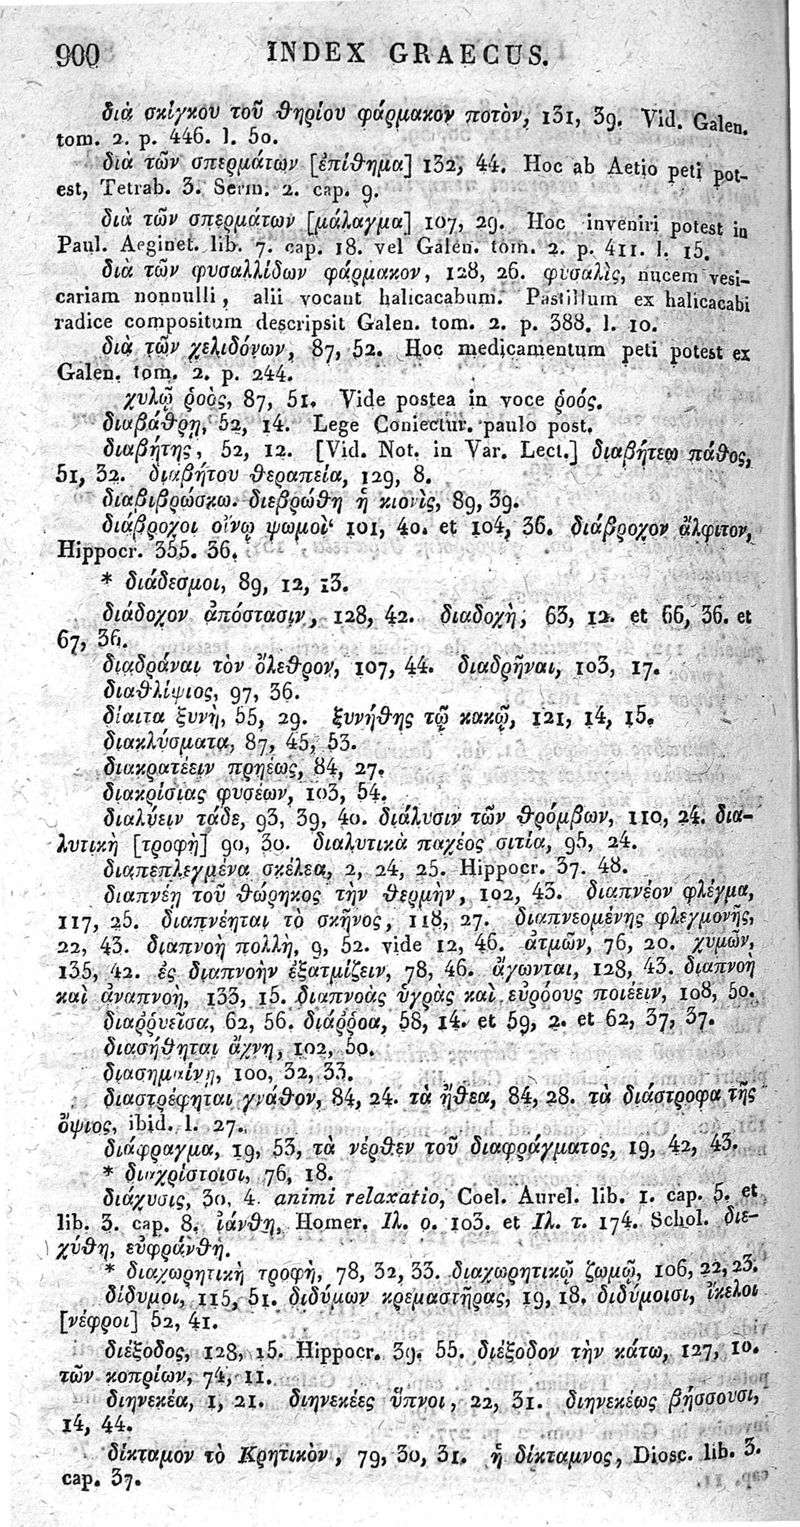 900 INDEX GRAECUS.
διὰ σκίγκου τοῦ θηρίου φάρμακον ποτὸν, 131, 39. Vid. Galen.
tom. 2. p. 446. l. 50.
διὰ τῶν σπερμάτων [ἐπίθημα] 132, 44. Hoc ab Aetio peti pot-
est, Tetrab. 3. Serm. 2. cap. 9.
διὰ τῶν σπερμάτων [μάλαγμα] 107, 29. Hoc inveniri potest in
Paul. Aeginet. lib. 7. cap. 18. vel Galen. tom. 2. p. 411. l. 15.
διὰ τῶν φυσαλλίδων φάρμακον, 128, 26. φυσαλὶς, nucem vesi-
cariam nonnulli, alii vocant halicacabum. Pastillum ex halicacabi
radice compositum descripsit Galen. tom. 2. p. 388. l. 10.
διὰ τῶν χελιδόνων, 87, 52. Hoc medicamentum peti potest ex
Galen. tom. 2. p. 244.
χυλῷ ῥοὸς, 87, 51. Vide postea in voce ῥοός.
διαβάθρη, 52, 14. Lege Coniectur. paulo post.
διαβήτης, 52, 12. [Vid. Not. in Var. Lect.] διαβήτεω πάθος,
51, 32. διαβήτου θεραπεία, 129, 8.
διαβιβρώσκω. διεβρώθη ἡ κιονὶς, 89, 39.
διάβροχοι οἴνῳ ψωμοὶ 101, 40. et 104, 36. διάβροχον ἄλφιτον,
Hippocr. 355. 36.
* διάδεσμοι, 89, 12, 13.
διάδοχον ἀπόστασιν, 128, 42. διαδοχὴ, 63, 12. et 66, 36. et
67, 36.
διαδράναι τὸν ὄλεθρον, 107, 44. διαδρῆναι, 103, 17.
διαθλίψιος, 97, 36.
δίαιτα ξυνὴ, 55, 29. ξυνήθης τῷ κακῷ, 121, 14, 15.
διακλύσματα, 87, 45, 53.
διακρατέειν πρηέως, 84, 27.
διακρίσιας φυσέων, 103, 54.
διαλύειν τάδε, 93, 39, 40. διάλυσιν τῶν θρόμβων, 110, 24. δια-
λυτικὴ [τροφὴ] 90, 30. διαλυτικὰ παχέος σιτία, 95, 24.
διαπεπλεγμένα σκέλεα, 2, 24, 25. Hippocr. 37. 48.
διαπνέῃ τοῦ θώρηκος τὴν θερμὴν, 102, 43. διαπνέον φλέγμα,
117, 25. διαπνέηται τὸ σκῆνος, 118, 27. διαπνεομένης φλεγμονῆς,
22, 43. διαπνοὴ πολλὴ, 9, 52. vide 12, 46. ἀτμῶν, 76, 20. χυμῶν,
135, 42. ἐς διαπνοὴν ἐξατμίζειν, 78, 46. ἄγωνται, 128, 43. διαπνοὴ
καὶ ἀναπνοὴ, 133, 15. διαπνοὰς ὑγρὰς καὶ εὐρόους ποιέειν, 108, 50.
διαῤῥυεῖσα, 62, 56. διάῤῥοα, 58, 14. et 59, 2. et 62, 37, 37.
διασήθηται ἄχνη, 102, 50.
διασημαίνῃ, 100, 32, 33.
διαστρέφηται γνάθον, 84, 24. τὰ ἤθεα, 84, 28. τὰ διάστροφα τῆς
ὄψιος, ibid. l. 27.
διάφραγμα, 19, 53, τὰ νέρθεν τοῦ διαφράγματος, 19, 42, 43.
* διαχρίστοισι, 76, 18.
διάχυσις, 30, 4. animi relaxatio, Coel. Aurel. lib. 1. cap. 5. et
lib. 3. cap. 8. ἰάνθη, Homer. Ιλ. ο. 103. et Ιλ. τ. 174. Schol. διε-
χύθη, εὐφράνθη.
* διαχωρητικὴ τροφὴ, 78, 32, 33. διαχωρητικῷ ζωμῷ, 106, 22, 23.
δίδυμοι, 115, 51. διδύμων κρεμαστῆρας, 19, 18. διδύμοισι, ἴκελοι
[νέφροι] 52, 41.
διέξοδος, 128, 15. Hippocr. 39. 55. διέξοδον τὴν κάτω, 127, 10.
τῶν κοπρίων, 74, 11.
διηνεκέα, 1, 21. διηνεκέες ὕπνοι, 22, 31. διηνεκέως βήσσουσι,
14, 44.
δίκταμον τὸ Κρητικὸν, 79, 30, 31. ἡ δίκταμνος, Diosc. lib. 3.
cap. 37.